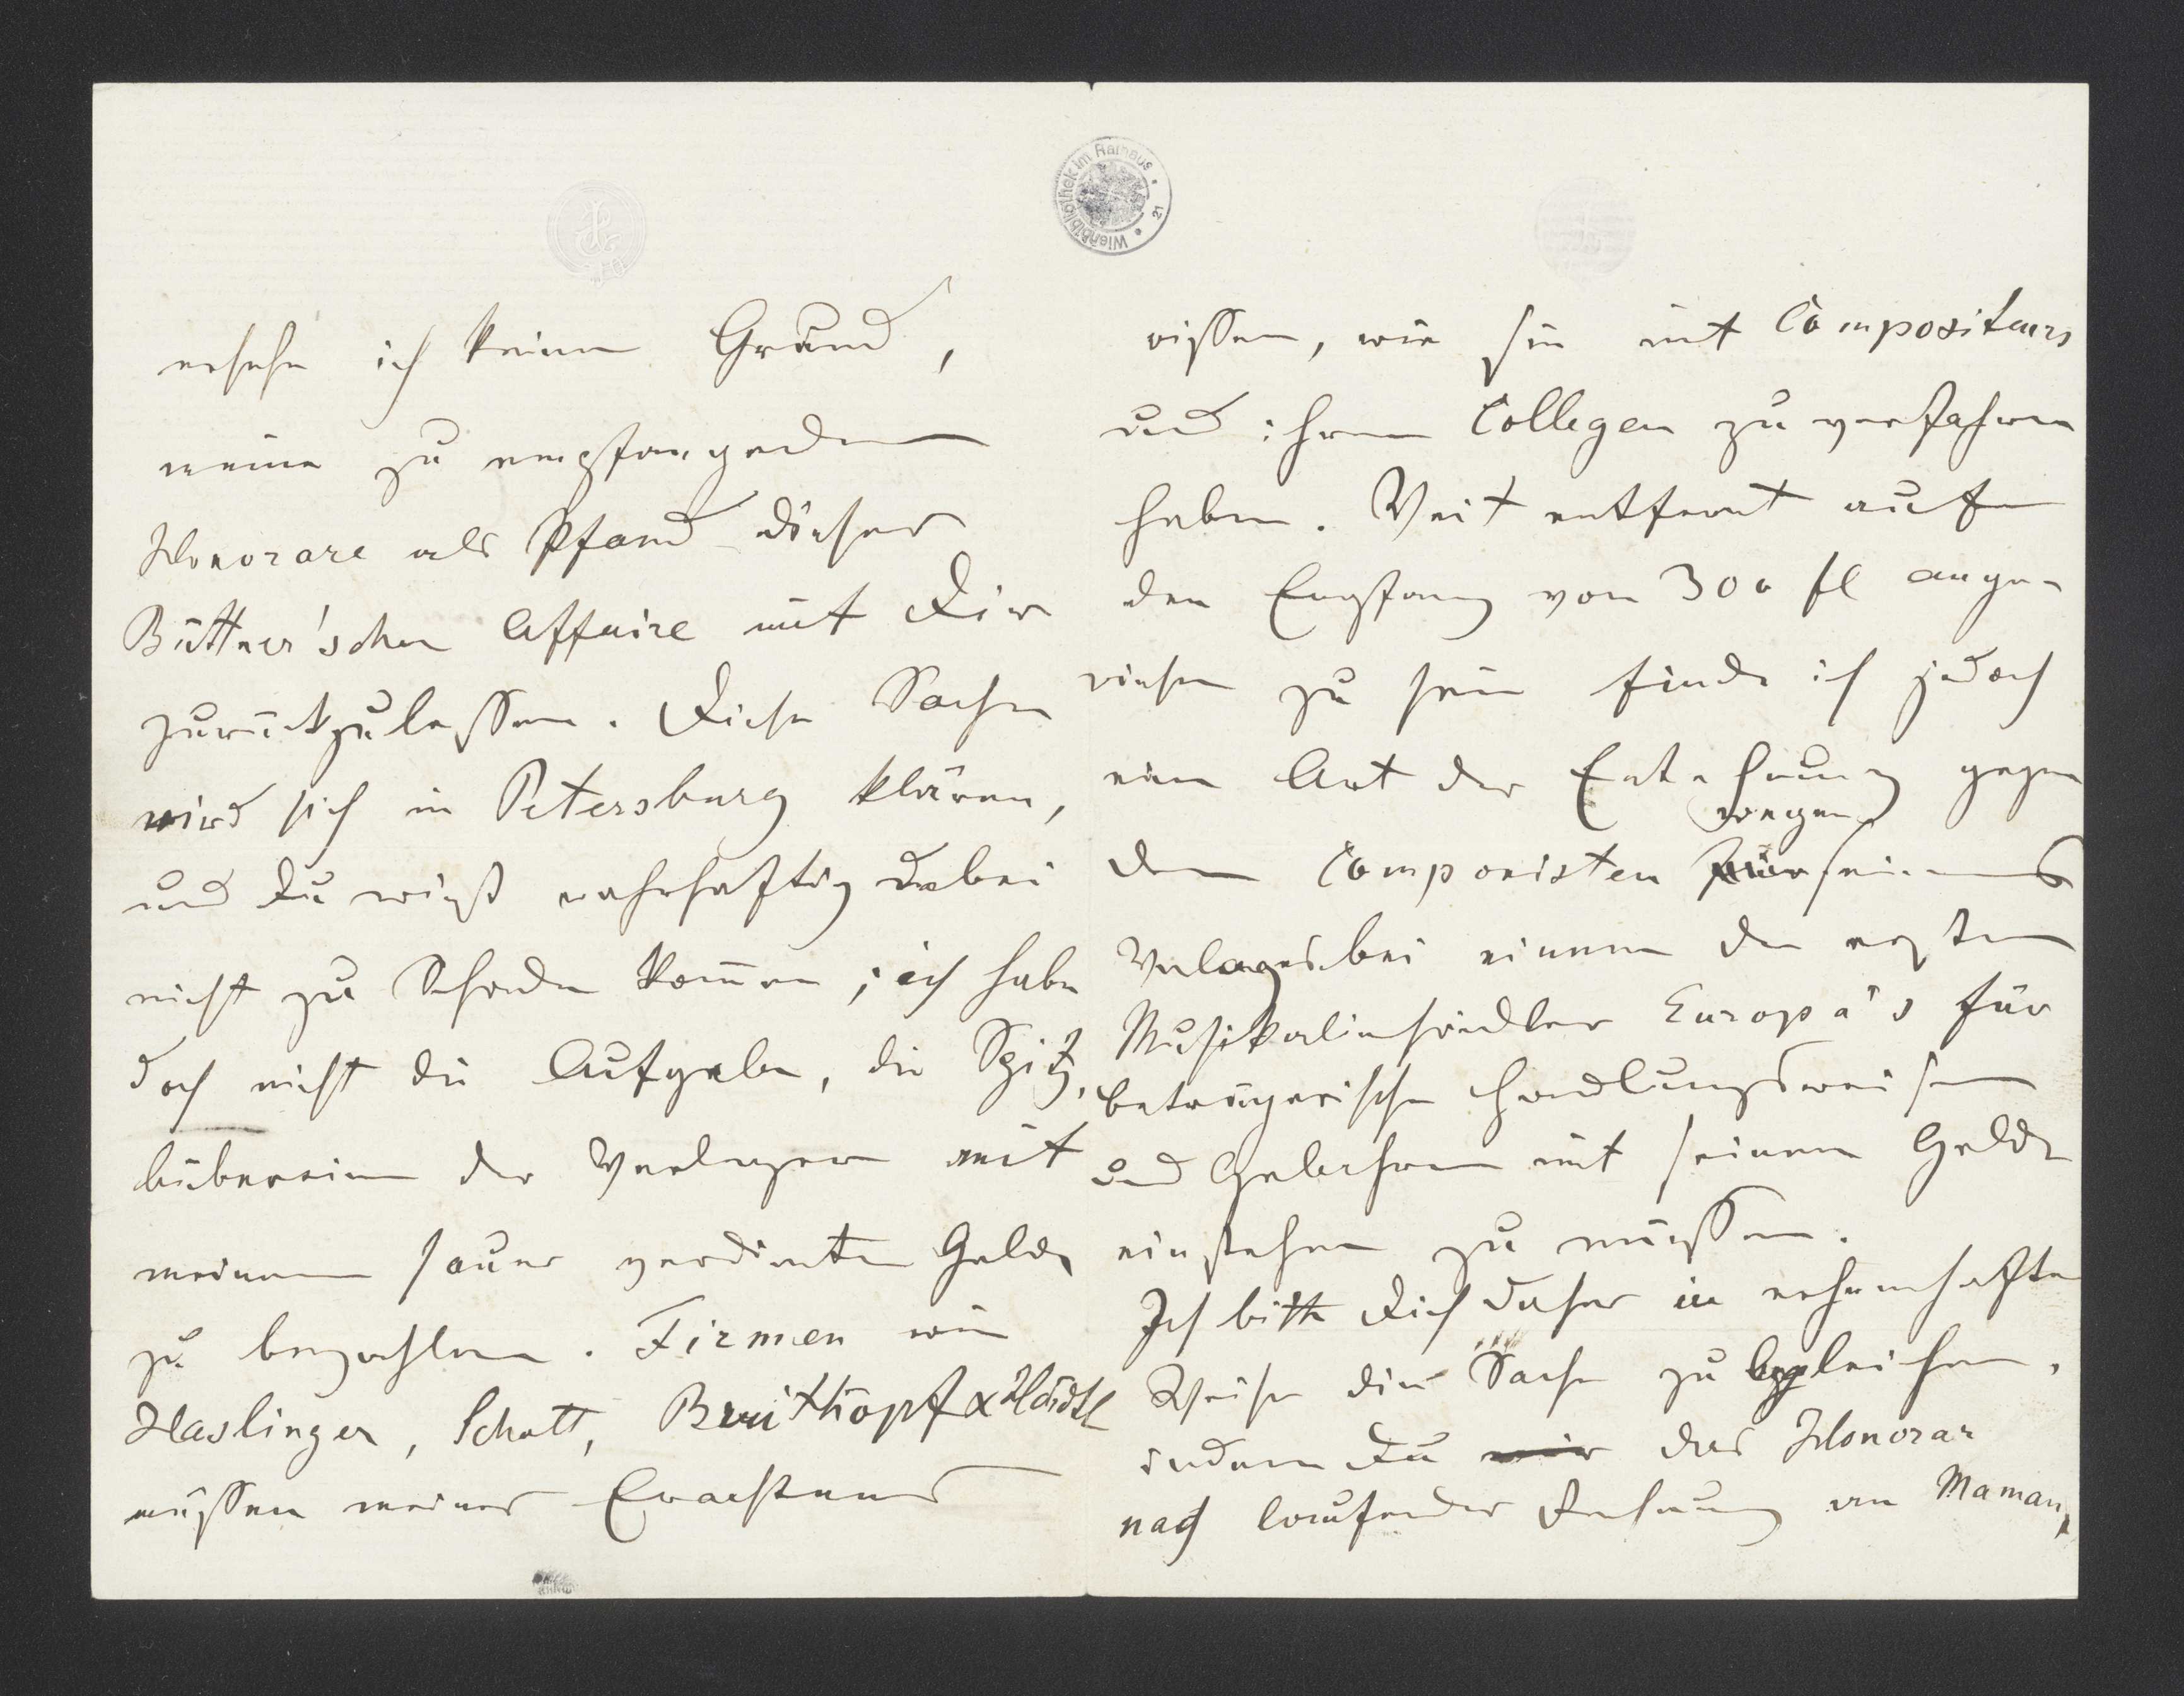 Wienbibliothek im Rathaus
21
ersehe ich keinen Grund,
meine zu empfangenden
Honorare als Pfand dieser
Büttner'schen Affaire mit Dir
zurückzulassen. Diese Sache
wird sich in Petersburg klären,
und Du wirst wahrhaftig dabei
nicht zu Schaden kom̅en; ich habe
doch nicht die Aufgabe, die Spitz,
bübereien der Verleger mit
meinem sauer verdienten Gelde
zu bezahlen. Firmen wie
Haslinger, Schott, Breitkopf & Härdtl
müssen meines Erachtens
wissen, wie sie mit Compositeurs
und ihren Collegen zu verfahren
haben. Weit entfernt auf
den Empfang von 300 fl ange-
wiesen zu sein finde ich jedoch
eine Art der gegen
wegen
den Componisten für seines
Verlages bei einem der ersten
Musikalienhändler Europa's für
betrügerische Handlungsweisen
und Gebahren mit seinem Gelde
einstehen zu müssen.
Ich bitte Dich daher in ehrenhafter
Weise die Sache zu begleichen,
indem Du mir das Honorar
nach laufender Rechnung an Maman,